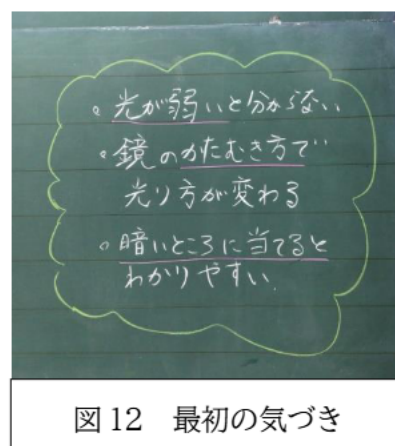 。光が弱いと分からない
。鏡のかたむき方で
光り方が変わる
。暗いところに当てると
わかりやすい
図12 最初の気づき